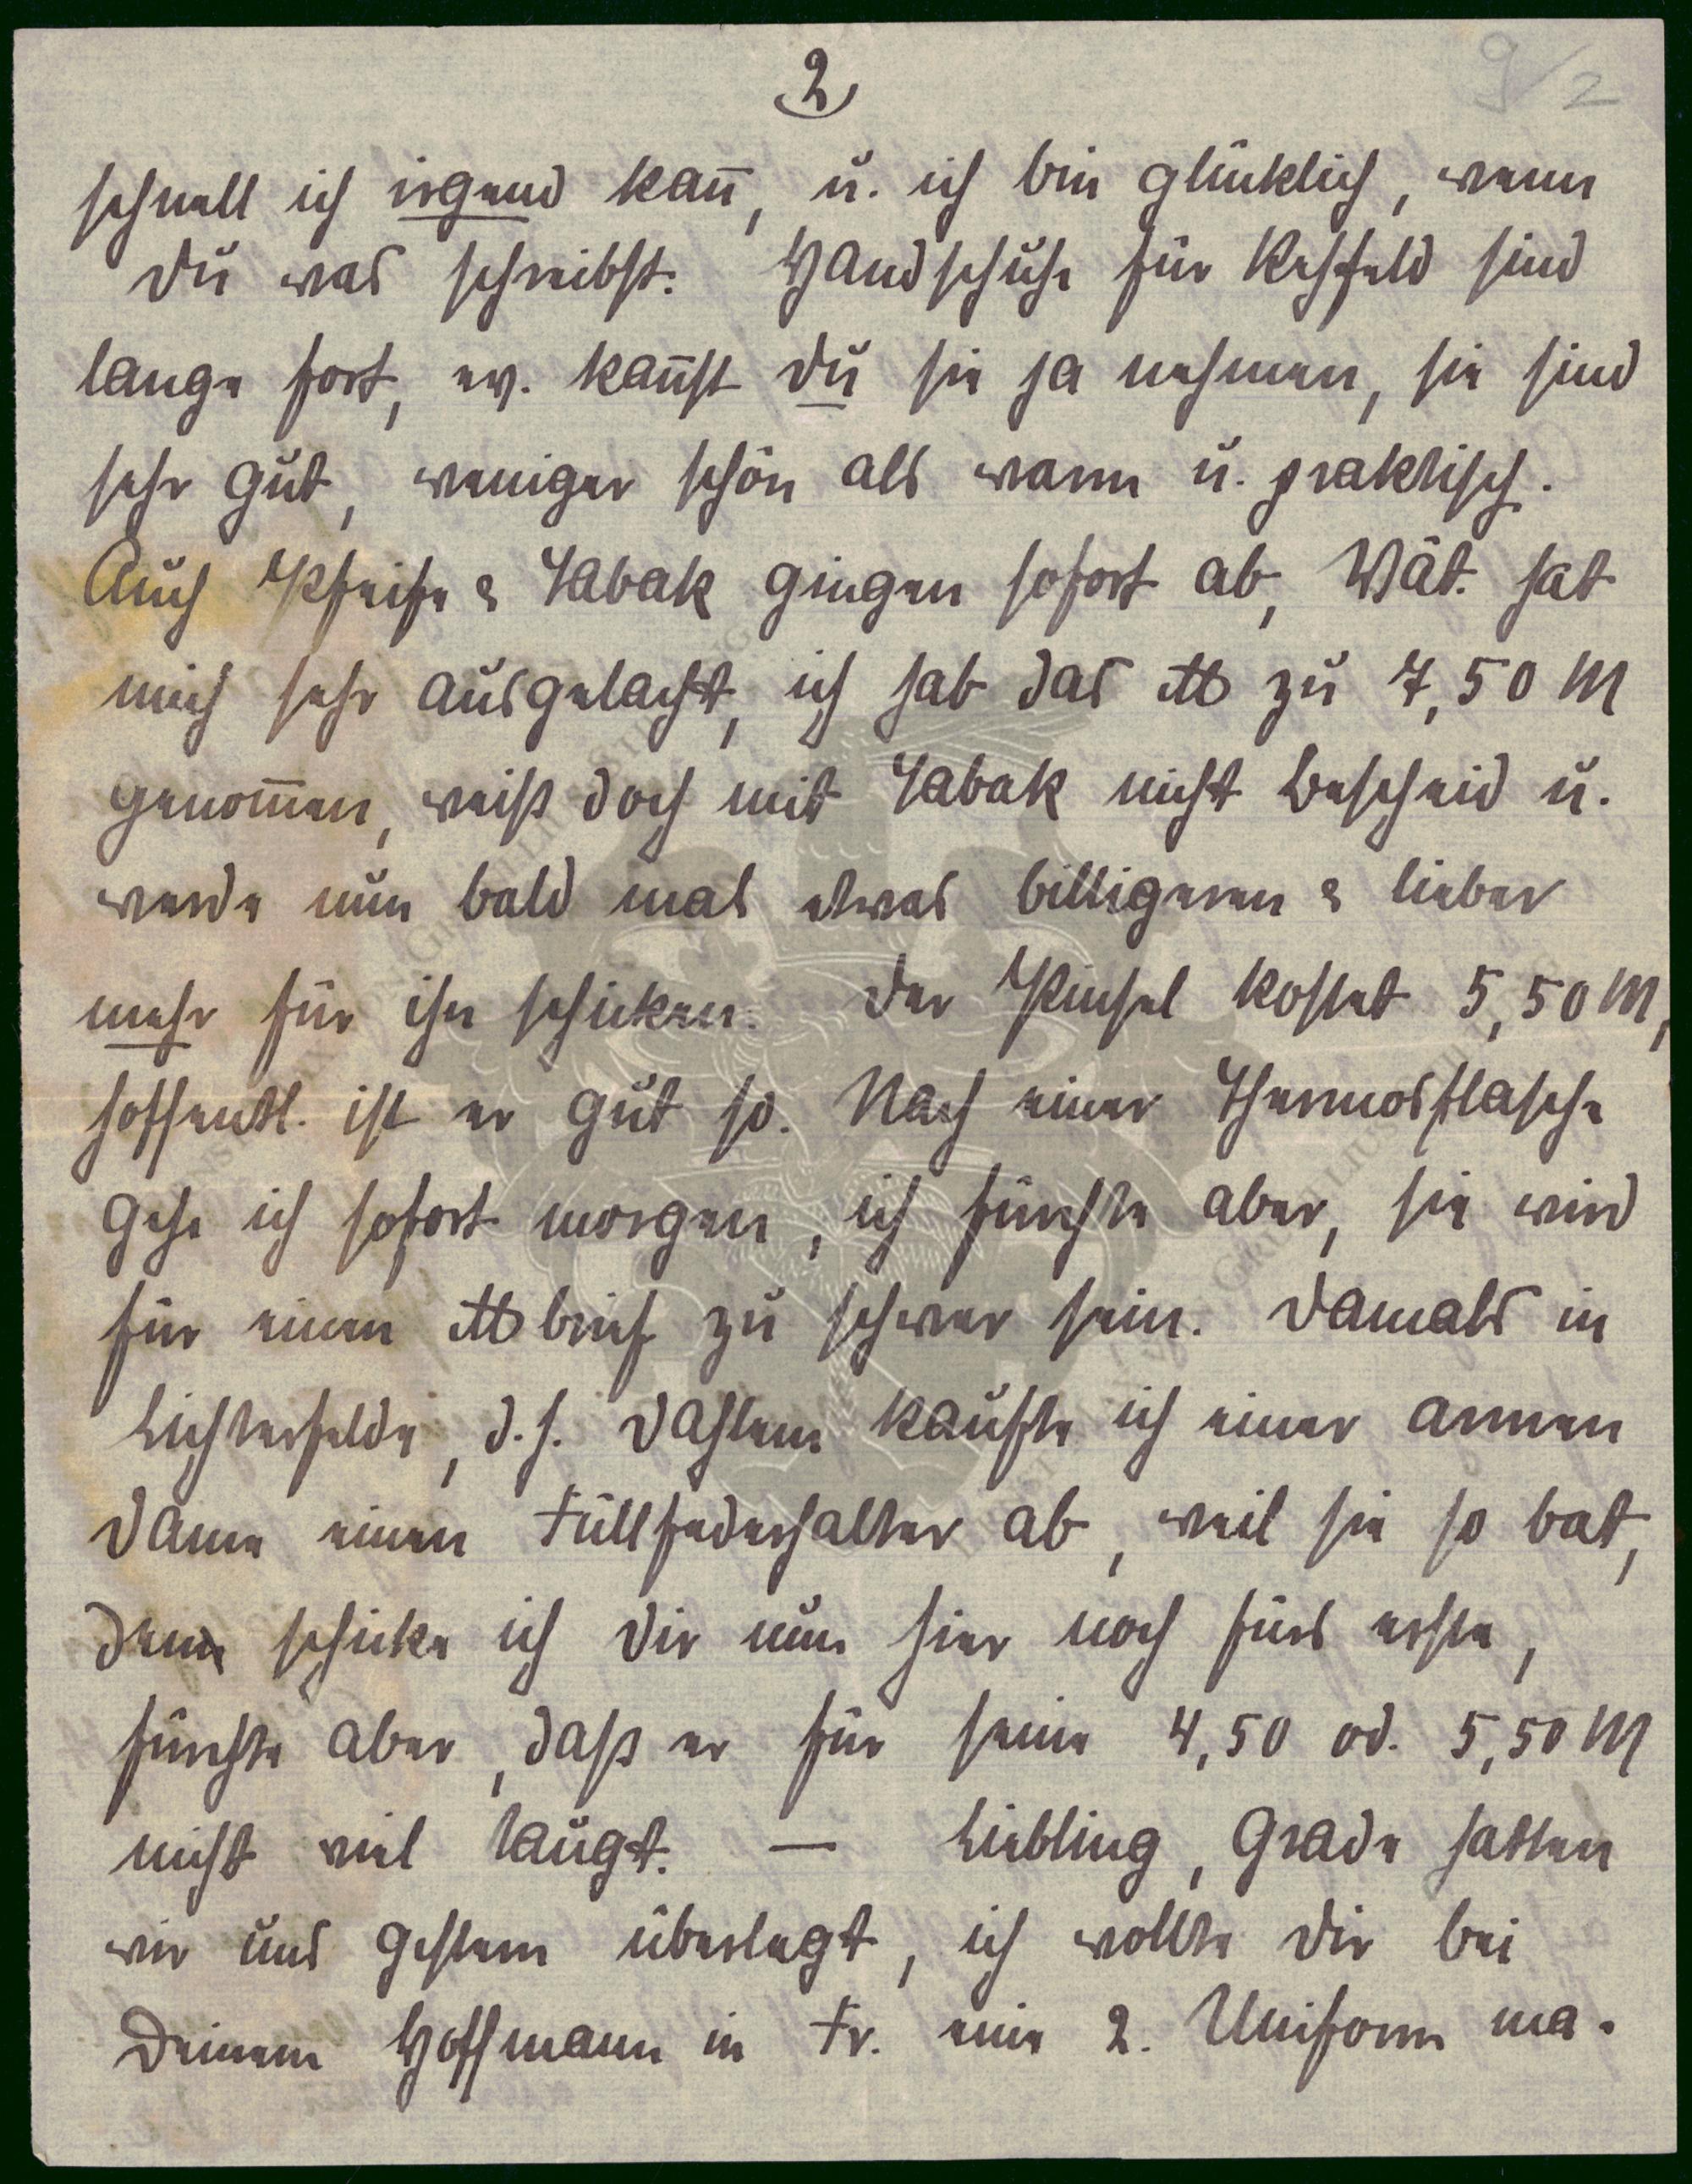 2
9/2
schnell ich irgend kan̅, u. ich bin glücklich, wenn
Du was schreibst. Handschuhe für Rehfeld sind
lange fort, ev. kan̅st Du sie ja nehmen, sie sind
sehr gut, weniger schön als warm u. praktisch.
Auch Pfeife & Tabak gingen sofort ab, Vät. hat
mich sehr ausgelacht, ich hab das ℔ zu 7,50 M
genom̅en, weiß doch mit Tabak nicht Bescheid u.
werde nun bald mal etwas billigeren & lieber
mehr für ihn schicken. Der Pinsel kostet 5,50 M,
hoffentl. ist er gut so. Nach einer Thermosflasche
gehe ich sofort morgen, ich fürchte aber, sie wird
für einen ℔brief zu schwer sein. Damals in
Lichterfelde, d.h. Dahlem kaufte ich einer armen
Dame einen Füllfederhalter ab, weil sie so bat,
den schicke ich Dir nun hier noch fürs erste,
fürchte aber, daß er für seine 4,50 od. 5,50 M
nicht viel taugt. — Liebling, grade hatten
wir uns gestern überlegt, ich wollte Dir bei
Deinem Hoffmann in Fr. eine 2. Uniform ma-